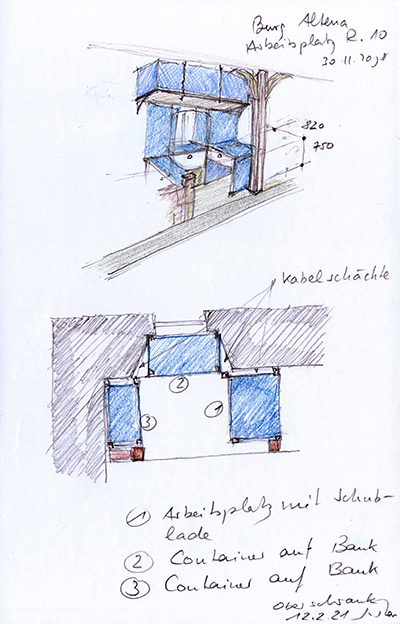 Burg Altena
Arbeitsplatz R. 10
30.11.2021
820
750
Kabelschächte
2
1
3
1 Arbeitsplatz mit Schub-
lade
2 Container auf Bank
3 Container auf Bank
Oberschrank
12.2.21